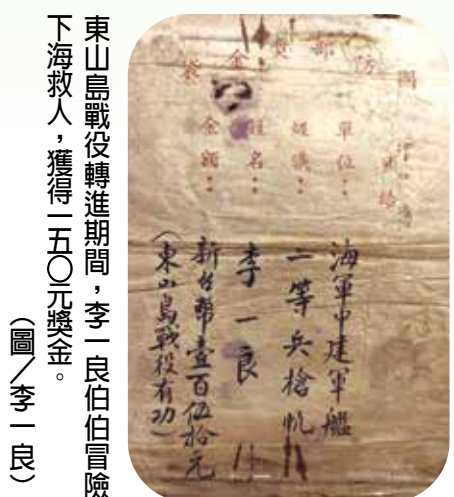 國防部獎金袋
單位：
級職：
姓名：
金額：
海軍中建軍艦
二等兵槍帆
李一良
新台幣壹百伍拾元
（東山島戰役有功）
東山島戰役轉進期間，李一良伯伯冒險
下海救人，獲得一五〇元獎金。
（圖／李一良）